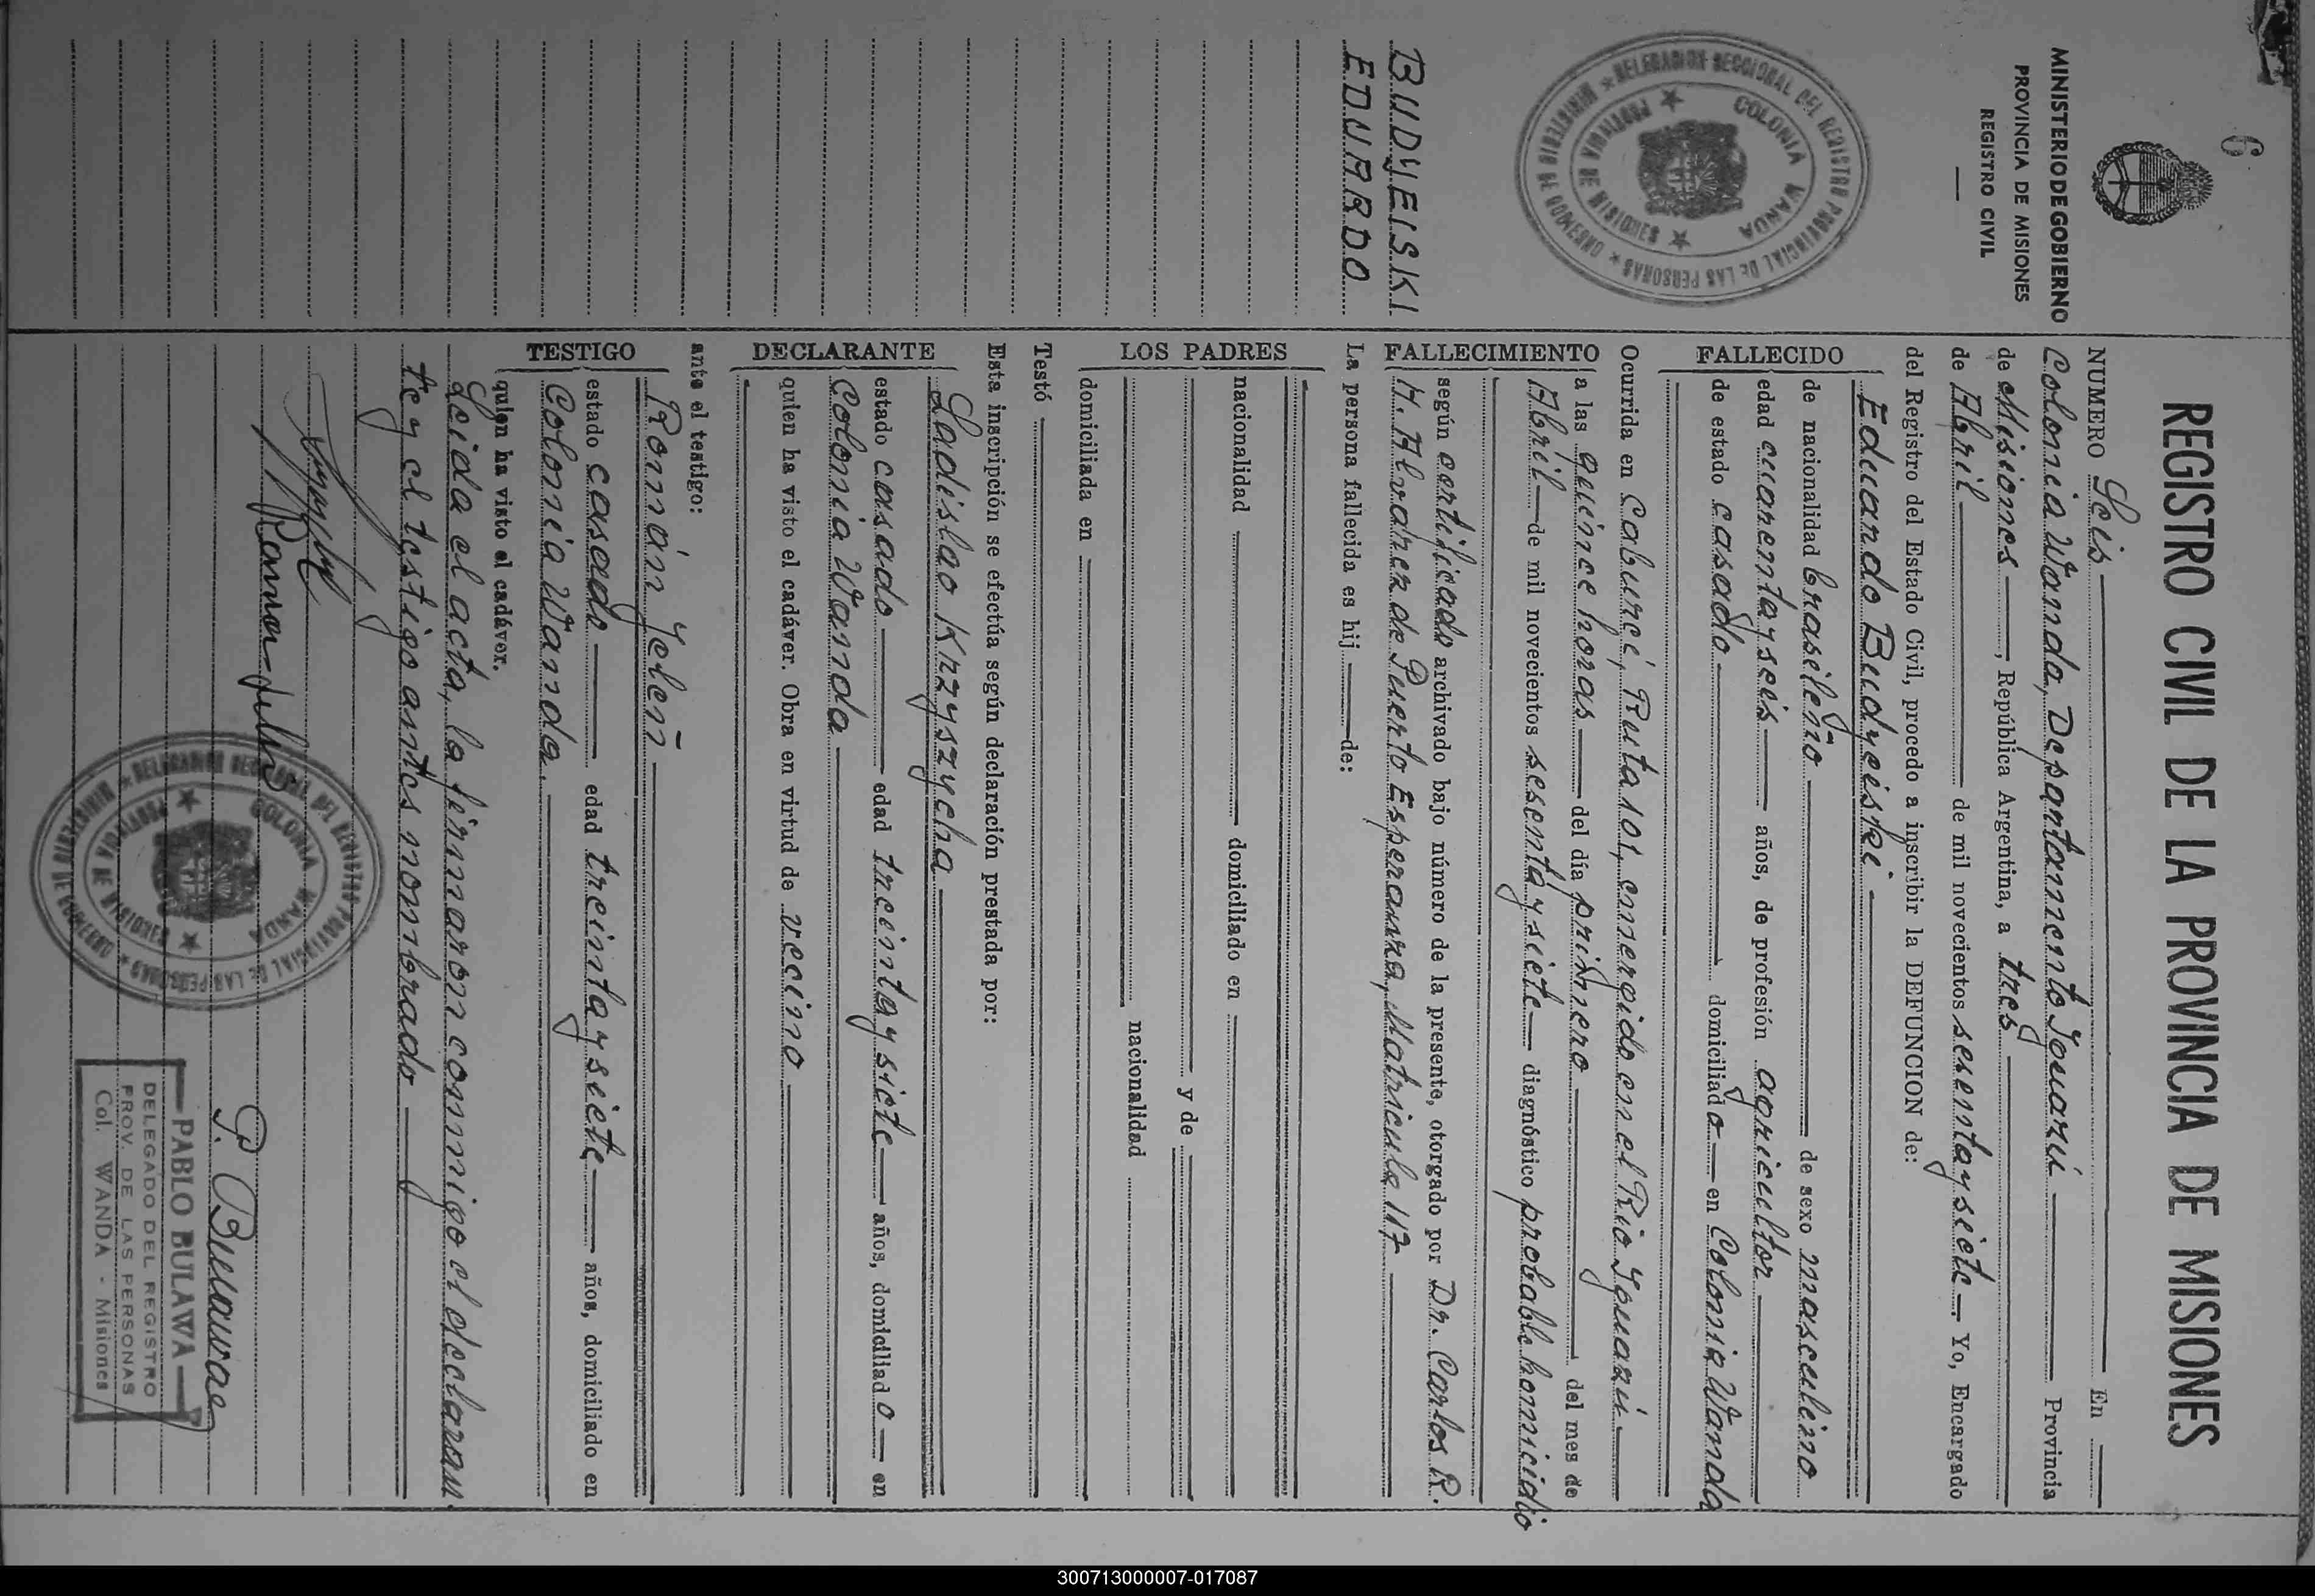 6
MINISTERIO DE GOBIERNO
PROVINCIA DE MISIONES
REGISTRO CIVIL
DELEGACION SECCIONAL DEL REGISTRO PROVINCIAL DE LAS PERSONAS * MINISTERIO DE GOBIERNO *
COLONIA WANDA
PROVINCIA DE MISIONES
BUDYEISKI
EDUARDO
REGISTRO CIVIL DE LA PROVINCIA DE MISIONES
NUMERO Seis En
Colonia Wanda, Depantamento Iguazú Provincia
de Misiones, República Argentina, a tres
de Abril de mil novecientos sesentaysiete Yo, Encargado
del Registro del Estado Civil, procedo a inscribir la DEFUNCION de:
FALLECIDO
Eduardo Budyeiski
de nacionalidad brasileño de sexo masculino
edad cuarentayseis años, de profesión agricultor
de estado casado domiciliado en Colonia Wanda
FALLECIMIENTO
Ocurrida en Caburei, Ruta 101, emergido en el Rio Iguazú
a las quince horas del día primero del mes de
Abril de mil novecientos sesentaysiete diagnóstico probable homicidio
según certificado archivado bajo número de la presente, otorgado por Dr. Carlos R.
H. Alvarez de Puerto Esperanza, Matricula 117
La persona fallecida es hij de:
LOS PADRES
nacionalidad domiciliado en
y de
nacionalidad
domiciliada en
Testó
Esta inscripción se efectúa según declaración prestada por:
DECLARANTE
Ladislao Krzyszycha
estado casado edad treintaysiete años, domiciliado en
Colonia Wanda
quien ha visto el cadáver. Obra en virtud de vecino
ante el testigo:
TESTIGO
Román Jeleñ
estado casado edad treintaysiete años, domiciliado en
Colonia Wanda.
quien ha visto el cadáver.
Leida el acta, la firmaron conmigo el declaran-
te y el testigo antes nombrado
Roman Jelen
P. Bulawa
DELEGACION SECCIONAL DEL REGISTRO PROVINCIAL DE LAS PERSONAS * MINISTERIO DE GOBIERNO *
COLONIA WANDA
PROVINCIA DE MISIONES
PABLO BULAWA
DELEGADO DEL REGISTRO
PROV. DE LAS PERSONAS
Col. WANDA - Misiones
300713000007-017087